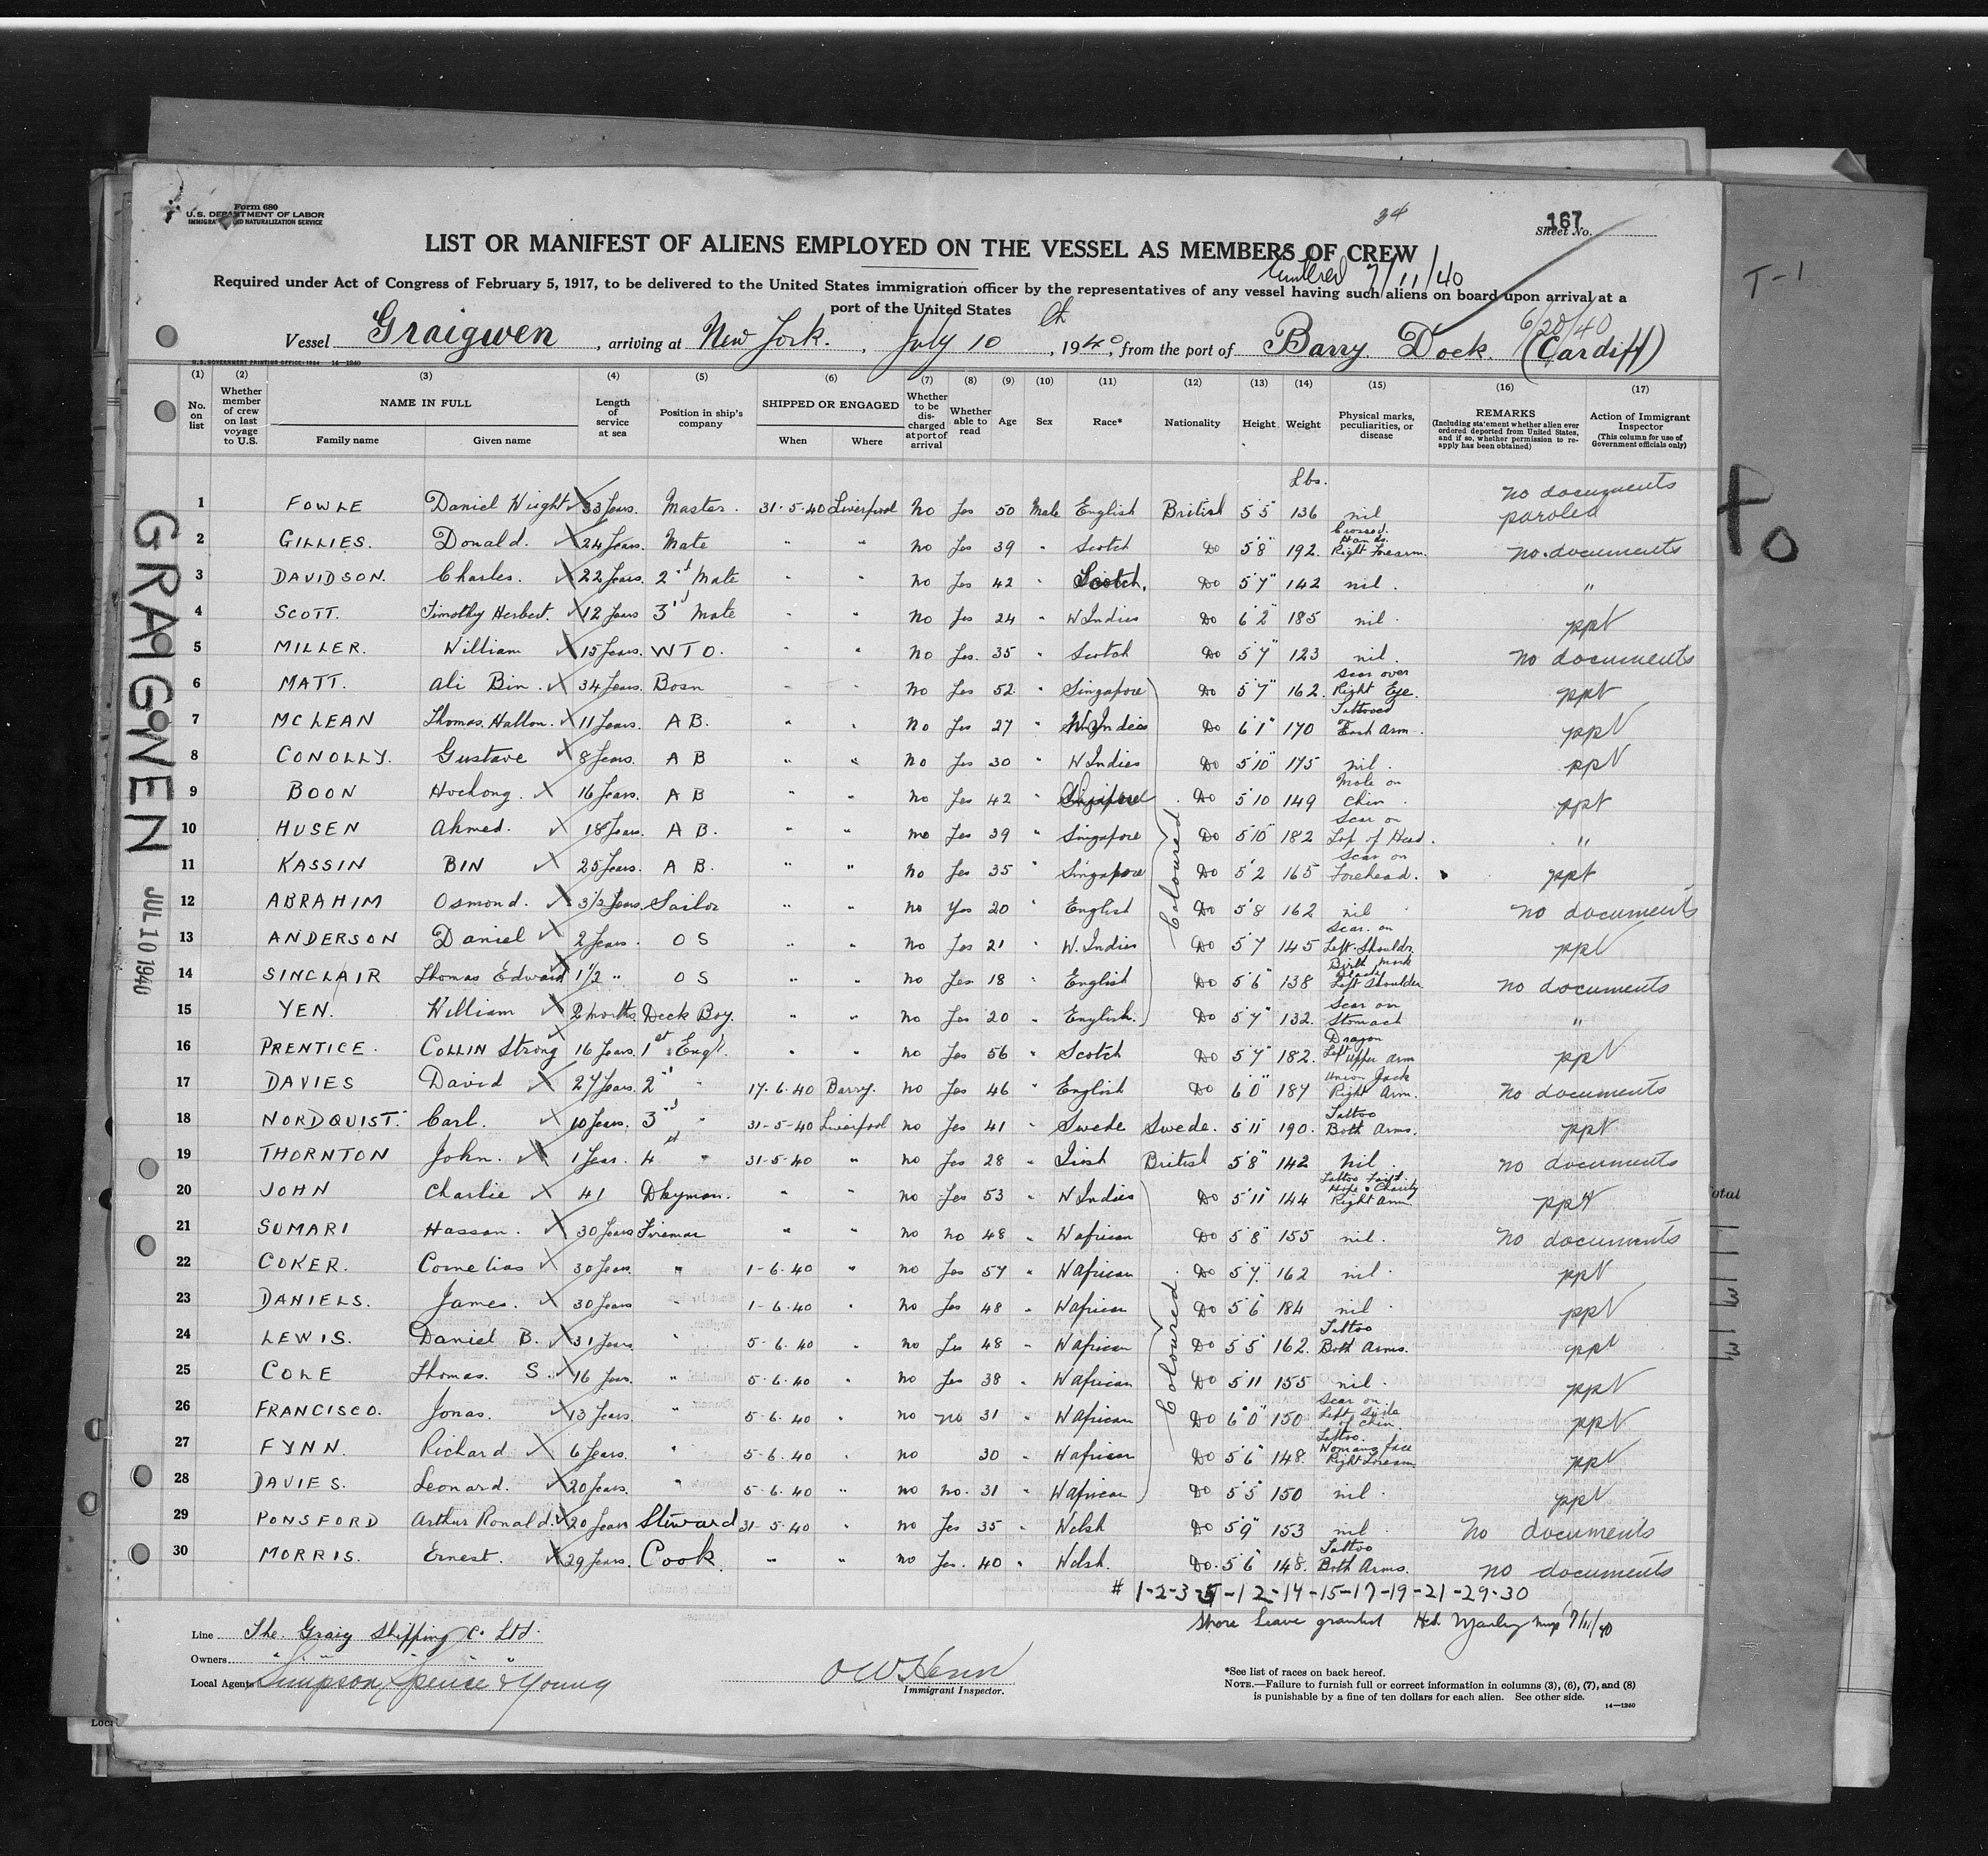 Form 680
U.S. DEPARTMENT OF LABOR
IMMIGRATION AND NATURALIZATION SERVICE
34
167
Sheet No.
T-1
LIST OR MANIFEST OF ALIENS EMPLOYED ON THE VESSEL AS MEMBERS OF CREW
7/11/40
Required under Act of Congress of February 5, 1917, to be delivered to the United States immigration officer by the representatives of any vessel having such aliens on board upon arrival at a
port of the United States
6/20/40
Vessel Graigwen, arriving at New York., July 10th, 1940, from the port of Barry Dock. (Cardiff)
U.S. GOVERNMENT PRINTING OFFICE: 1934 14-1240
(1) (2) (3) (4) (5) (6) (7) (8) (9) (10) (11) (12) (13) (14) (15) (16) (17)
No. on list
Whether member of crew on last voyage to U.S.
NAME IN FULL
Family name Given name
Length of service at sea
Position in ship's company
SHIPPED OR ENGAGED
When Where
Whether to be discharged at port of arrival
Whether able to read
Age
Sex
Race*
Nationality
Height
Weight
Physical marks, peculiarities, or disease
REMARKS
(Including statement whether alien ever ordered deported from United States, and if so, whether permission to reapply has been obtained)
Action of Immigrant Inspector
(This column for use of Government officials only)
Lbs.
1 FOWLE Daniel Wight 33 Years. Master. 31-5-40 Liverpool No Yes 50 Male English British 5'5" 136 nil no documents paroled
2 GILLIES. Donald. 24 Years. Mate " " No Yes 39 " Scotch Do 5'8" 192. Crossed Hands Right Forearm. no documents
3 DAVIDSON. Charles. 22 Years. 2nd Mate " " No Yes 42 " Scotch. Do 5'7" 142 nil. "
4 SCOTT. Timothy Herbert. 12 Years 3rd Mate " " No Yes 24 " W Indies Do 6'2" 185 nil. ppt
5 MILLER. William 15 Years. W T O. " " No Yes. 35 " Scotch Do 5'7" 123 nil. no documents
6 MATT. Ali Bin. 34 Years. Bosn " " No Yes 52 " Singapore Do 5'7" 162. Scar over Right Eye. ppt
7 MCLEAN Thomas. Hallon. 11 Years. A B. " " No Yes 27 " W Indies Do 6'1" 170 Tattooed Each Arm. ppt
8 CONOLLY. Gustave 8 Years. A B " " No Yes 30 " W Indies Do 5'10" 175 nil. ppt
9 BOON Hochong. 16 Years. A B " " No Yes 42 " Singapore Do 5'10 149 Mole on chin. ppt
10 HUSEN Ahmed. 18 Years. A B. " " no Yes 39 " Singapore Do 5'10" 182 Scar on Top of Head. "
11 KASSIN BIN 25 Years. A B. " " No Yes 35 " Singapore Do 5'2 165 Scar on Forehead. ppt
12 ABRAHIM Osmond. 3 1/2 Years. Sailor " " No Yes 20 " English Do 5'8 162 nil no documents
13 ANDERSON Daniel 2 Years. O S " " No Yes 21 " W. Indies Do 5'7 145 Scar. on Left Shouldr. ppt
14 SINCLAIR Thomas Edward 1 1/2 " O S " " No Yes 18 " English Do 5'6" 138 Birth Mark Left Shoulder no documents
15 YEN. William 2 months Deck Boy. " " No Yes 20 " English. Do 5'7" 132. Scar on Stomach "
16 PRENTICE. COLLIN Strong 16 Years. 1st Engr. " " No Yes 56 " Scotch Do 5'7" 182. Dragon Left upper arm ppt
17 DAVIES David 27 Years. 2nd " 17.6.40 Barry. No Yes 46 " English Do 6'0" 187 Union Jack Right Arm. no documents
18 NORDQUIST. Carl. 10 Years. 3rd " 31-5-40 Liverpool No Yes 41 " Swede Swede. 5'11" 190. Tattoo Both Arms. ppt
19 THORNTON John. 1 Year. 4th " 31-5-40 " No Yes 28 " Irish British 5'8" 142 Nil. no documents
20 JOHN Charlie 41 Dkyman. " " No Yes 53 " W Indies Do 5'11" 144 Tattoo Faith Hope & Charity Right Arm ppt
21 SUMARI Hassan. 30 Years Fireman " " no no 48 " W african Do 5'8" 155 nil. no documents
22 COKER. Cornelias 30 Years. " 1-6.40 " no Yes 57 " W african Do 5'7. 162 nil. ppt
23 DANIELS. James. 30 Years " 1-6.40 " No Yes 48 " W african Do 5'6 184 nil ppt
24 LEWIS. Daniel B. 31 Years " 5-6.40 " no Yes 48 " W african Do 5'5" 162. Tattoo Both Arms. ppt
25 COLE Thomas. S. 16 Years. " 5.6.40 " no Yes 38 " W african Do 5'11 155 nil. ppt
26 FRANCISCO. Jonas. 13 Years. " 5-6.40 " no no 31 " W african Do 6'0" 150 Scar on Left Side of chin ppt
27 FYNN. Richard 6 Years. " 5-6.40 " no 30 " W african Do 5'6" 148. Tattoo. Womans face Right Forearm ppt
28 DAVIES. Leonard. 20 Years. " 5.6.40 " no no. 31 " W african Do 5'5" 150 nil. ppt
29 PONSFORD Arthur Ronald. 20 Years Steward 31-5-40 " no Yes 35 " Welsh Do 5'9" 153 nil. no documents
30 MORRIS. Ernest. 29 Years. Cook " " no Yes. 40 " Welsh. Do. 5'6" 148. Tattoo Both Arms. no documents
Coloured
Coloured
GRAIGWEN
JUL 10 1940
to
otal
# 1-2-3-5-12-14-15-17-19-21-29-30
Shore Leave granted 7/11/40
Line The. Graig Shipping Co. Ltd.
Owners " " " "
Local Agents Simpson, Spence & Young
Immigrant Inspector.
*See list of races on back hereof.
NOTE.—Failure to furnish full or correct information in columns (3), (6), (7), and (8)
is punishable by a fine of ten dollars for each alien. See other side.
14—1240
Local